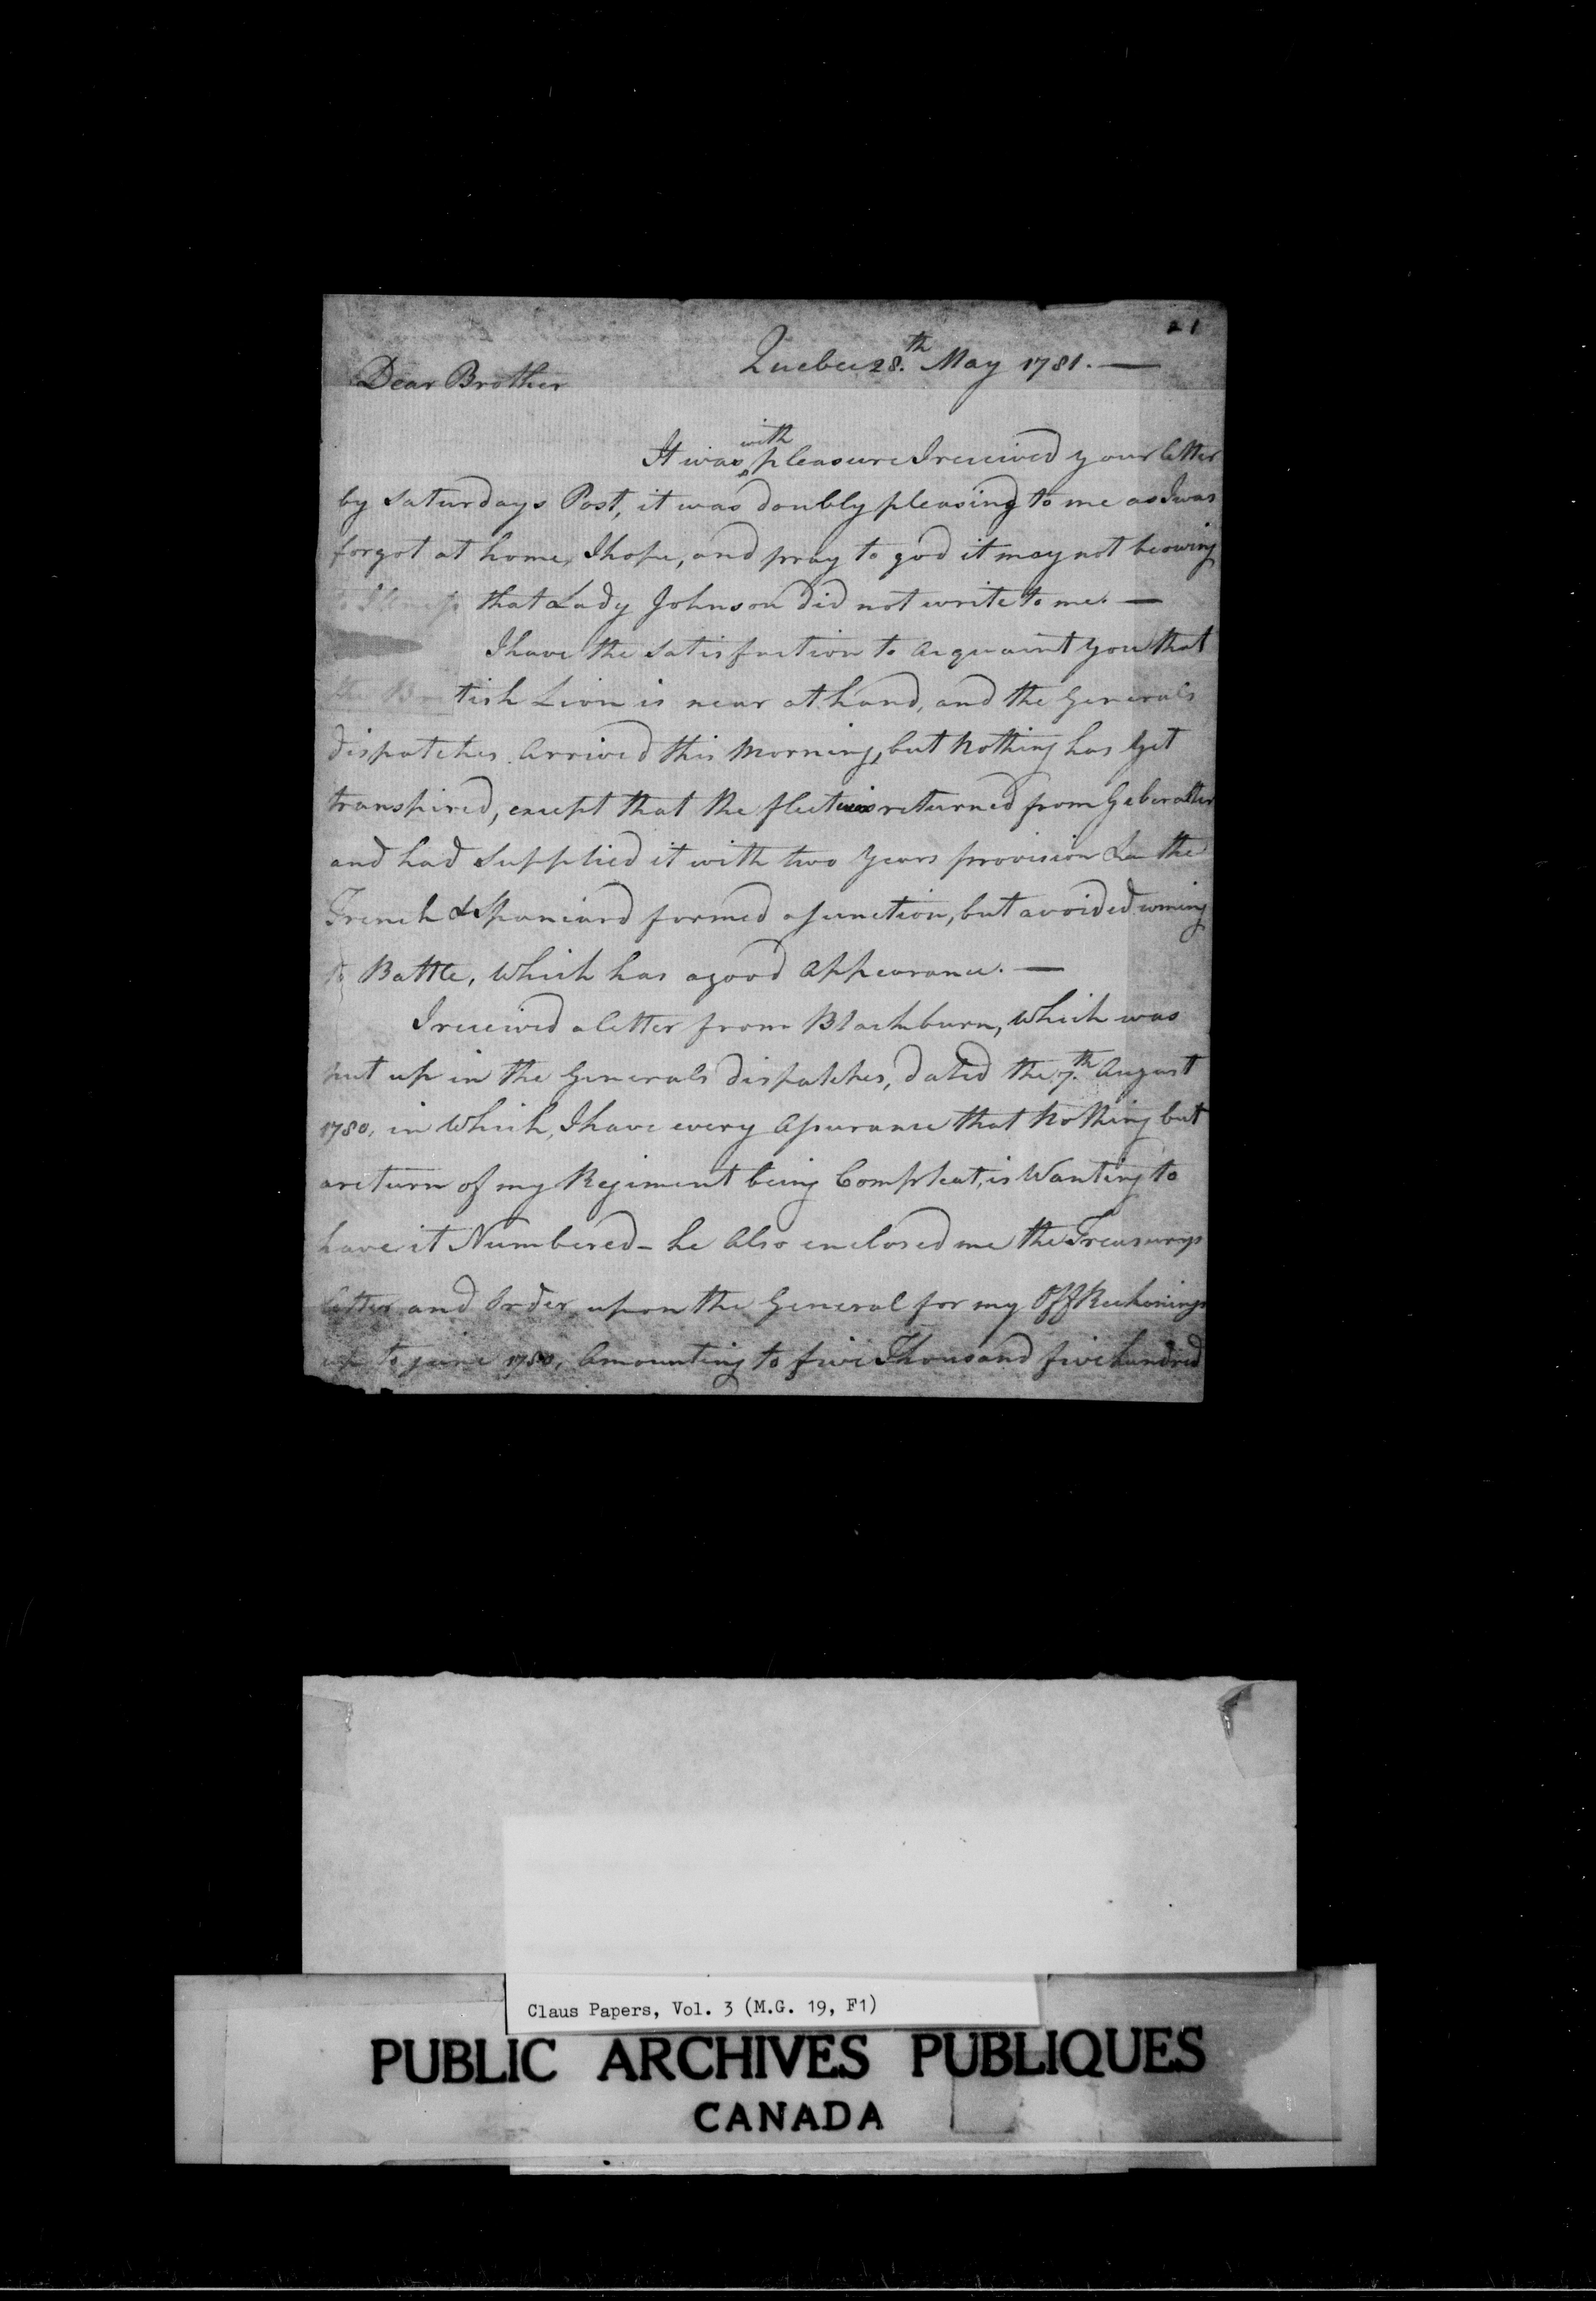 21
Quebec 28.th May 1781. —
Dear Brother
with
It was pleasure I received your letter
by Saturdays Post, it was doubly pleasing to me as I was
forgot at home, I hope, and pray to god it may not be owing
to Illness that Lady Johnson did not write to me. —
I have the Satisfaction to Acquaint you that
the British Lion is near at hand, and the Generals
dispatches Arrived this Morning, but Nothing has Yet
transpired, except that the fleet was returned from Geberalter
and had Supplied it with two Years provision the
French & Spaniard formed a Junction, but avoided coming
to Battle, Which has a good Appearance. —
I received a letter from Blackburn, Which was
put up in the Generals dispatches, dated the 7.th August
1780, in Which, I have every Assurance that Nothing but
a return of my Regiment being Compleat, is Wanting to
have it Numbered – he Also enclosed me the Treasurys
letter and Order upon the General for my Off Reckonings
up to June 1780, Amounting to five Thousand five hundred
Claus Papers, Vol. 3 (M.G. 19, F1)
PUBLIC ARCHIVES PUBLIQUES
CANADA